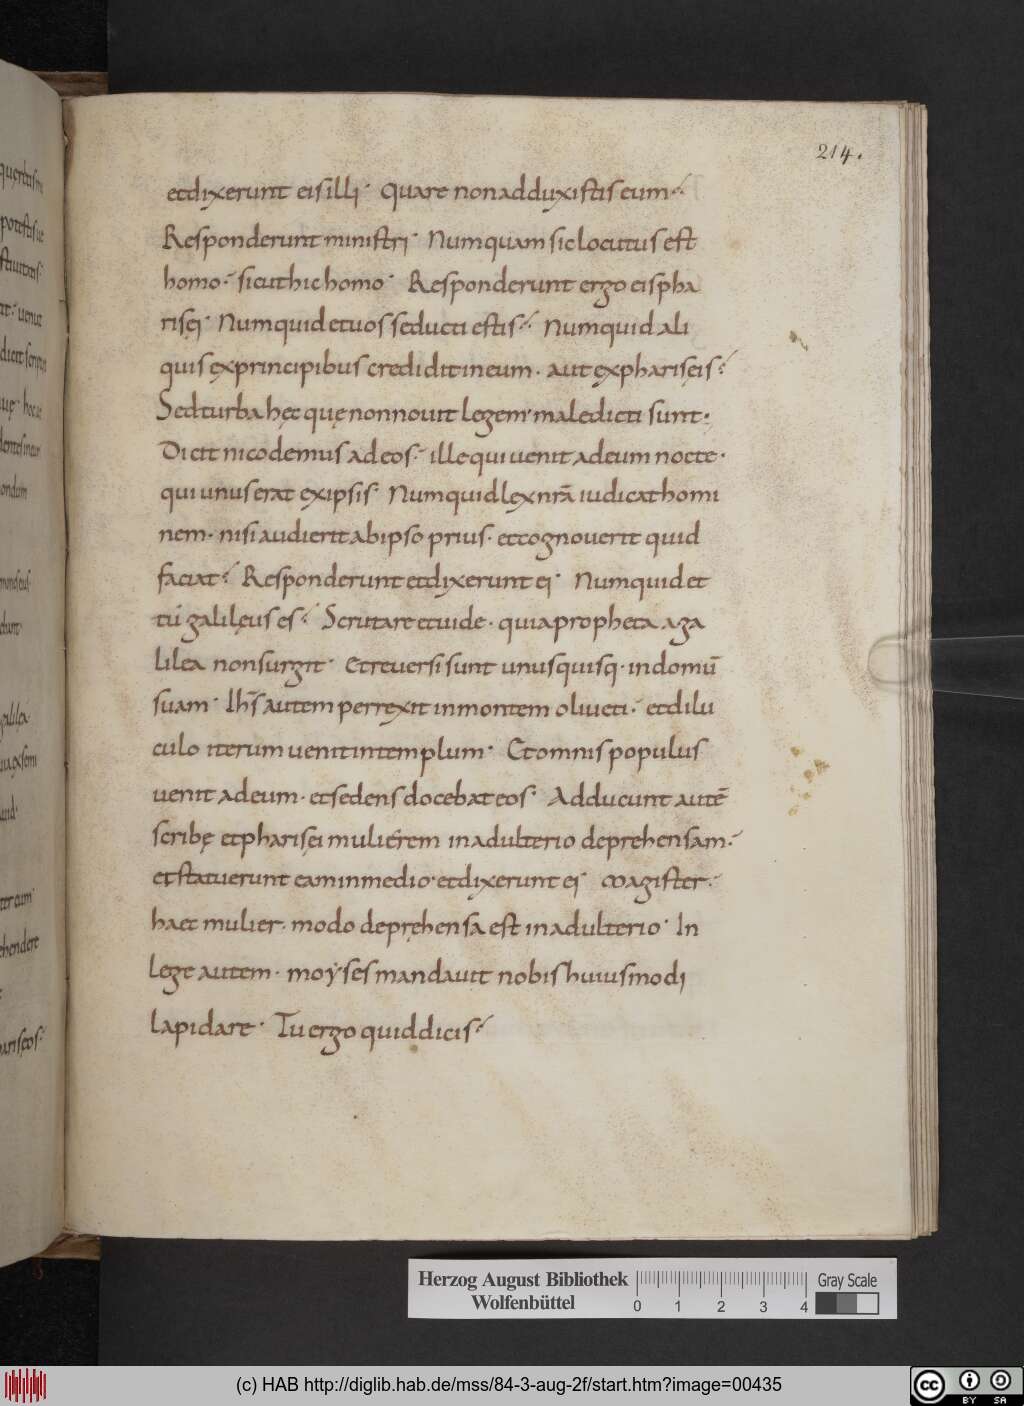 214.
et dixerunt eis illi· Quare non adduxistis eum·
Responderunt ministri· Numquam sic locutus est
homo· sicut hic homo· Responderunt ergo eis pha
risęi· Numquid et vos seducti estis· Numquid ali
quis ex principibus credidit in eum· aut ex pharisęis·
Sed turba hęc quę non novit legem· maledicti sunt·
Dicit nicodemus ad eos· ille qui venit ad eum nocte·
qui unus erat ex ipsis· Numquid lex nr̄a iudicat homi
nem· nisi audierit ab ipso prius· et cognoverit quid
faciat· Responderunt et dixerunt ei· Numquid et
tú galilęus es· Scrutare et vide· quia propheta a ga
lilea non surgit· Et reversi sunt unusquisq· in domū
suam· Ihs̄ autem perrexit in montem oliveti· et dilu
culo iterum venit in templum· Et omnis populus
venit ad eum· et sedens docebat eos· Adducunt autē
scribę et pharisęi muliérem in adulterio deprehensam·
et statuerunt eam in medio· et dixerunt ei· Magister·
haec mulier· modo deprehensa est in adulterio· In
lege autem· moẏses mandavit nobis huiusmodi
lapidare· Tu ergo quid dicis·
Herzog August Bibliothek
Wolfenbüttel
0 1 2 3 4
Gray Scale
(c) HAB http://diglib.hab.de/mss/84-3-aug-2f/start.htm?image=00435
cc BY SA